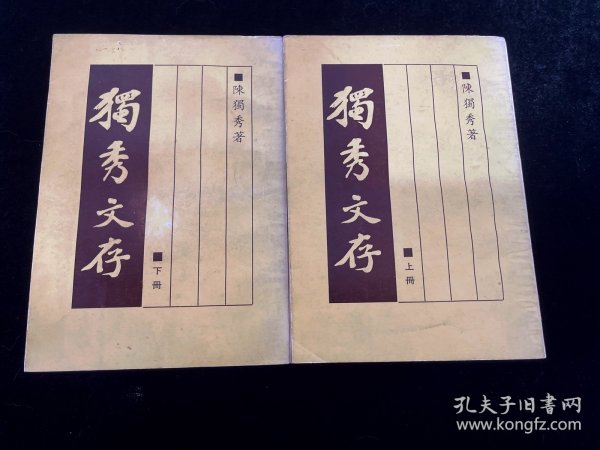 陳獨秀著
獨秀文存
下冊
陳獨秀著
獨秀文存
上冊
孔夫子旧書网
www.kongfz.com